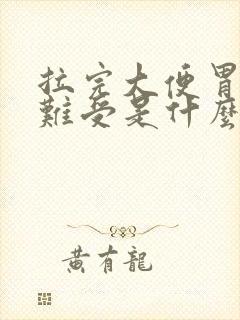 拉完大便胃
難受是什麼
黃有龍